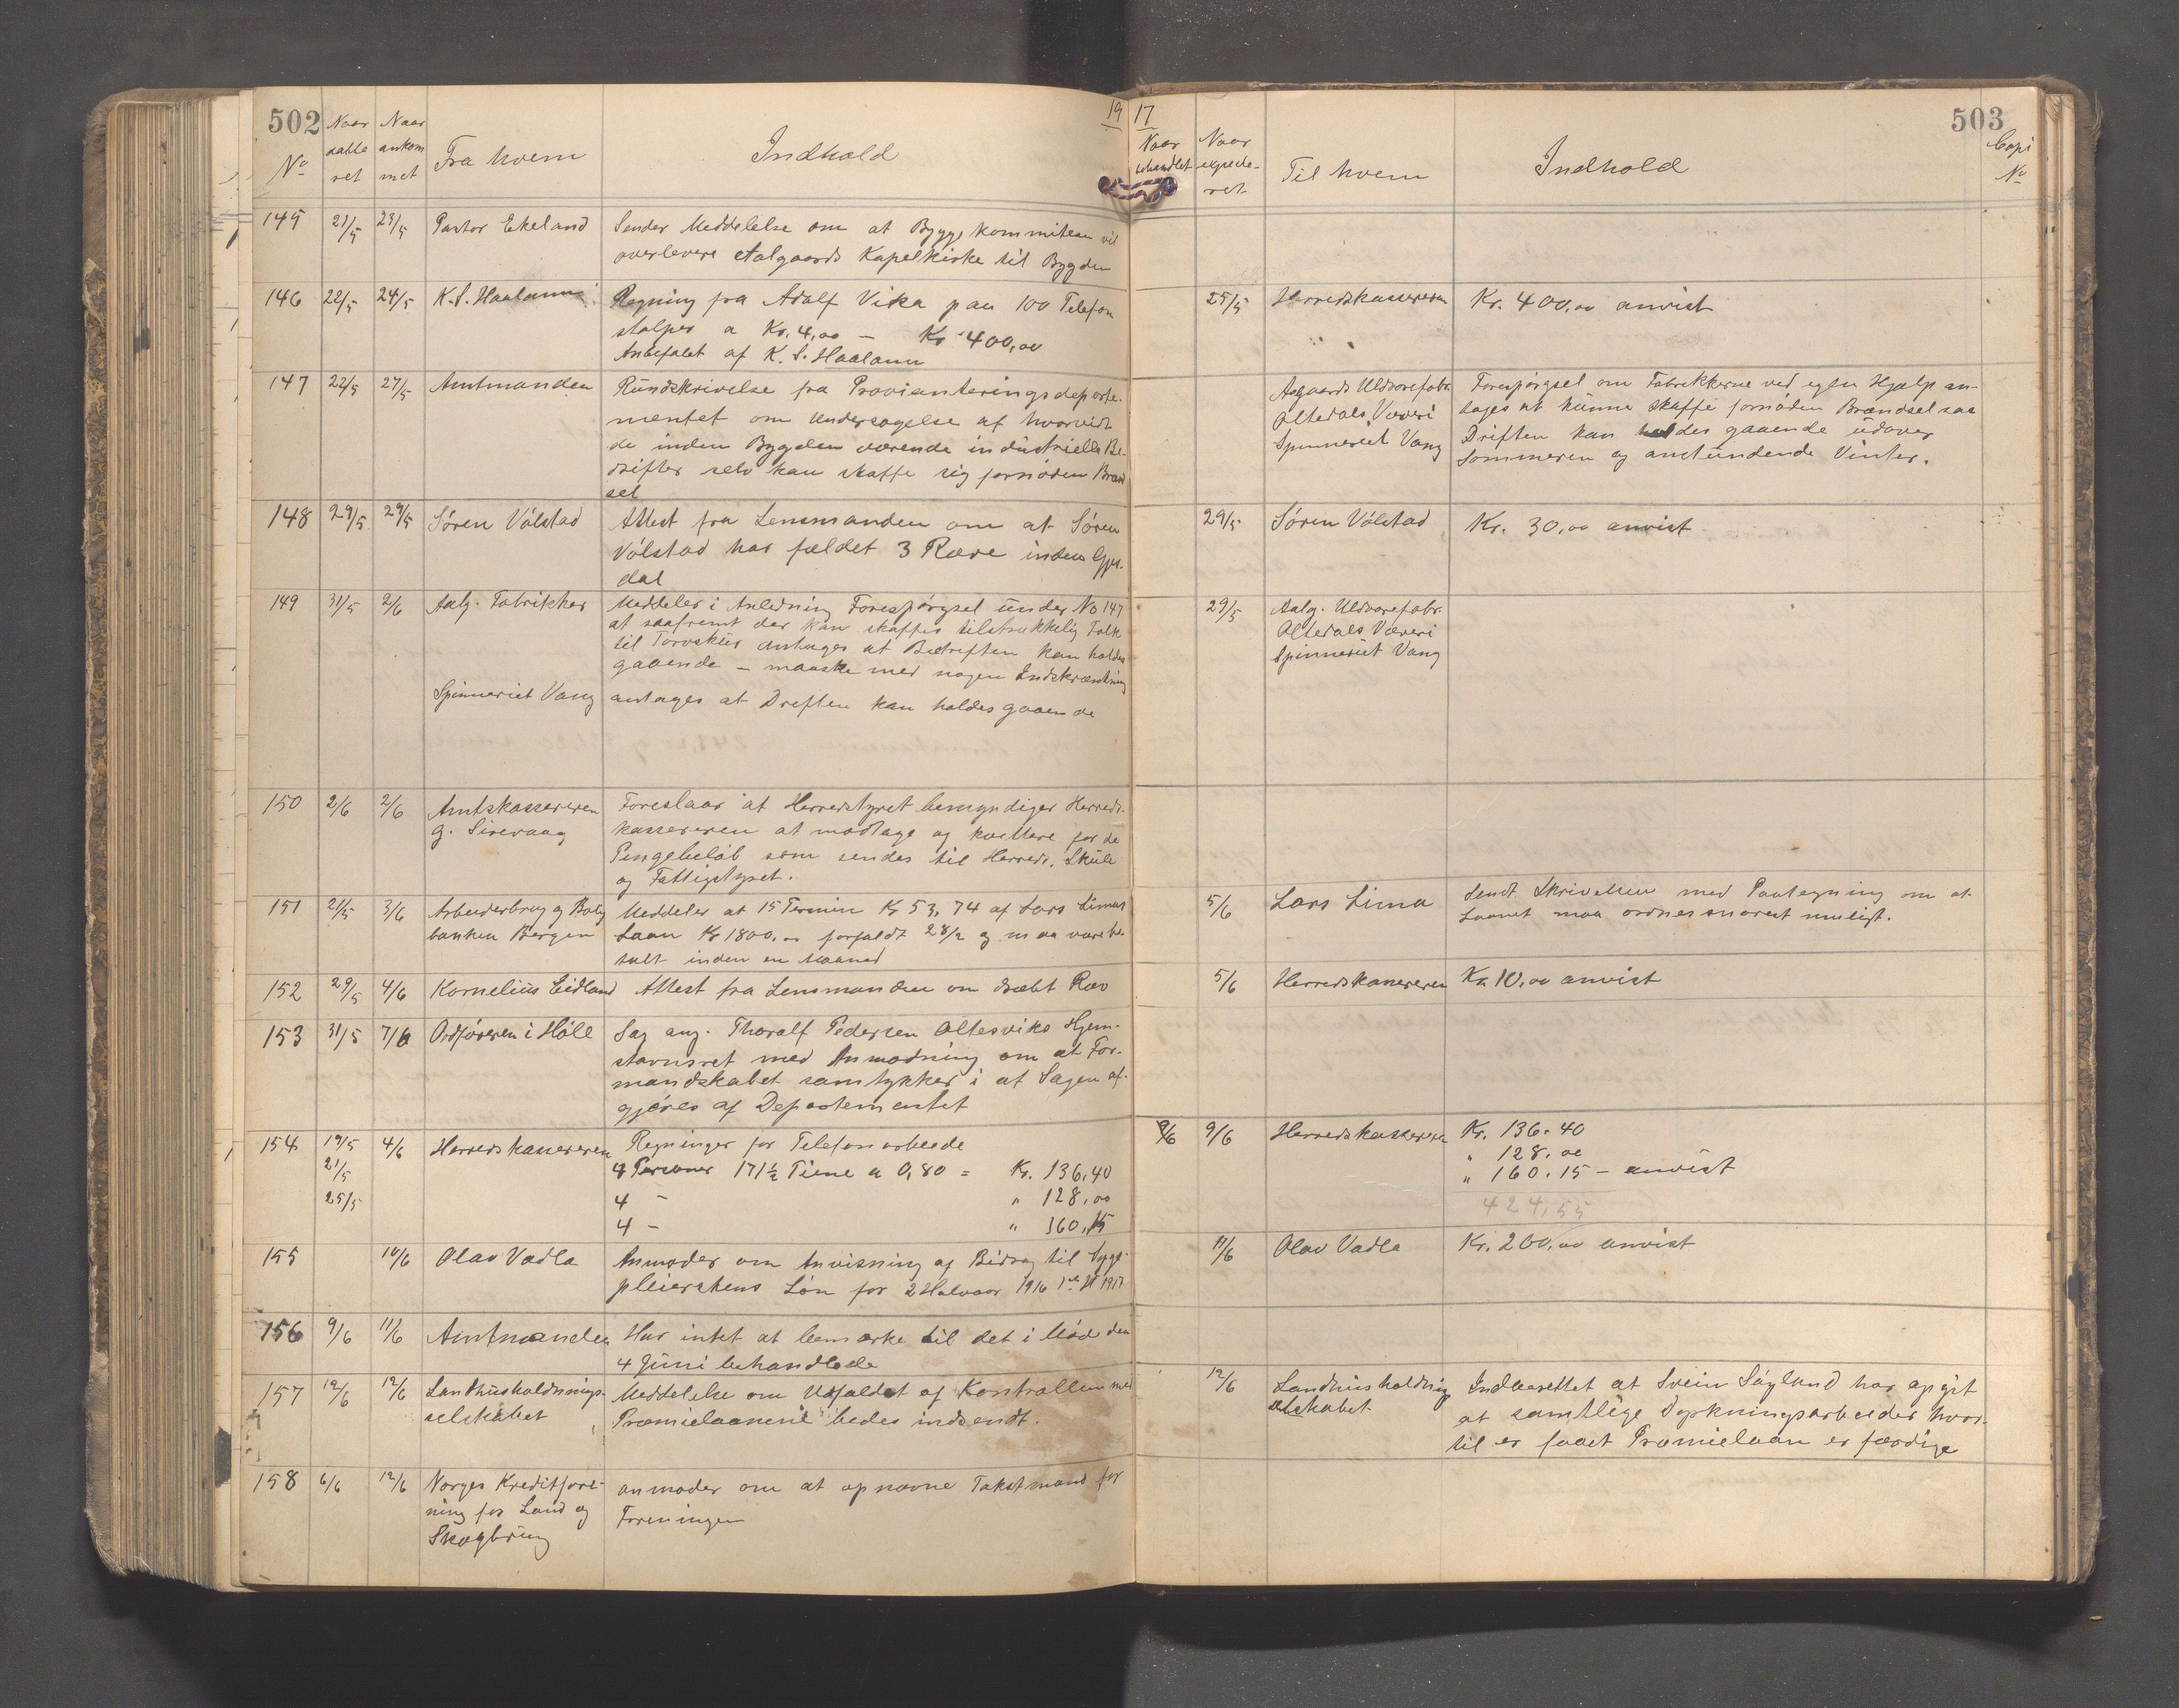 502
19
No
Naar
datte
ret
Naar
ankom
met
Fra hvem
Indhold
145 21/5 23/5 Pastor Ekeland Sender Meddelelse om at Byggekommiteen vil
overlevere Aalgaards Kapelkirke til Bygden
146 22/5 24/5 K. S. Haaland Regning fra Adolf Vika paa 100 Telefon
stolper a Kr. 4,00 — Kr 400,00
Anbefalet af K. S. Haaland
147 22/5 27/5 Amtmanden Rundskrivelse fra Provianteringsdeparte-
mentet om Undersøgelse af hvorvidt
de inden Bygden værende industrielle Be-
drifter selv kan skaffe sig fornøden Brænd
sel
148 29/5 29/5 Søren Vølstad Attest fra Lensmanden om at Søren
Vølstad har fældet 3 Ræve inden Gjes-
dal
149 31/5 2/6 Aalg. Fabrikker Meddeler i Anledning Forespørgsel under No 147
at saafremt der kan skaffes tilstrækkelig Folk
til Torvskur antages at Bedriften kan holdes
gaaende — maaske med nogen Indskrænkning
Spinneriet Vang antages at Driften kan holdes gaaende
150 2/6 2/6 Amtskassereren Foreslaar at Herredstyret bemyndiger Herreds-
G. Sirevaag kassereren at modtage og kvittere for de
Pengebeløb som sendes til Herreds, Skule
og Fattigstyret.
151 21/5 3/6 Arbeiderbrug og Bolig Meddeler at 15 Termin Kr 53,74 af Lars Limas
banken Bergen Laan Kr 1800,00 forfaldt 28/2 og maa være be-
talt inden en Maaned
152 29/5 4/6 Kornelius Eidland Attest fra Lensmanden om dræbt Ræv
153 31/5 7/6 Ordføreren i Høle Sag ang. Thoralf Pedersen Oltesviks Hjem-
stavnsret med Anmodning om at For-
mandskabet samtykker i at Sagen af-
gjøres af Departementet
154 19/5 4/6 Herredskassereren Regninger for Telefonarbeide
21/5 4 Personer 171½ Time a 0,80 = Kr. 136,40
25/5 4 — " 128,00
4 — " 160,15
155 10/6 Olav Vadla Anmoder om Anvisning af Bidrag til Syge-
pleierskens Løn for 2 Halvaar 1916 1ste H 1917
156 9/6 11/6 Amtmanden Har intet at bemærke til det i Møde den
4 Juni behandlede
157 12/6 12/6 Landhusholdnings- Meddelelse om Udfaldet af Kontrollen med
selskabet Præmielaanene bedes indsendt.
158 6/6 12/6 Norges Kreditfore- anmoder om at opnævne Takstmand for
ning for Land og Foreningen
Skogbrug
17
503
Naar
behandlet
Naar
expede-
ret
Til hvem
Indhold
Copi
No
25/5 Herredskassereren Kr. 400,00 anvist
Aalgaards Uldvarefabr. Forespørgsel om Fabrikkerne ved egen Hjælp an-
Oltedals Væveri tages at kunne skaffe fornøden Brændsel saa
Spinneriet Vang Driften kan holdes gaaende udover
Sommeren og anstundende Vinter.
29/5 Søren Vølstad Kr. 30,00 anvist
29/5 Aalg. Uldvarefabr.
Oltedals Væveri
Spinneriet Vang
5/6 Lars Lima Sendt Skrivelsen med Paategning om at
Laanet maa ordnes snarest muligt.
5/6 Herredskassereren Kr. 10,00 anvist
8/6 9/6 Herredskassereren Kr. 136.40
" 128.00
" 160.15 — anvist
424,55
11/6 Olav Vadla Kr. 200,00 anvist
12/6 Landhusholdning Indberettet at Svein Søyland har opgit
selskabet at samtlige Dyrkningsarbeider hvor-
til er faaet Præmielaan er færdige